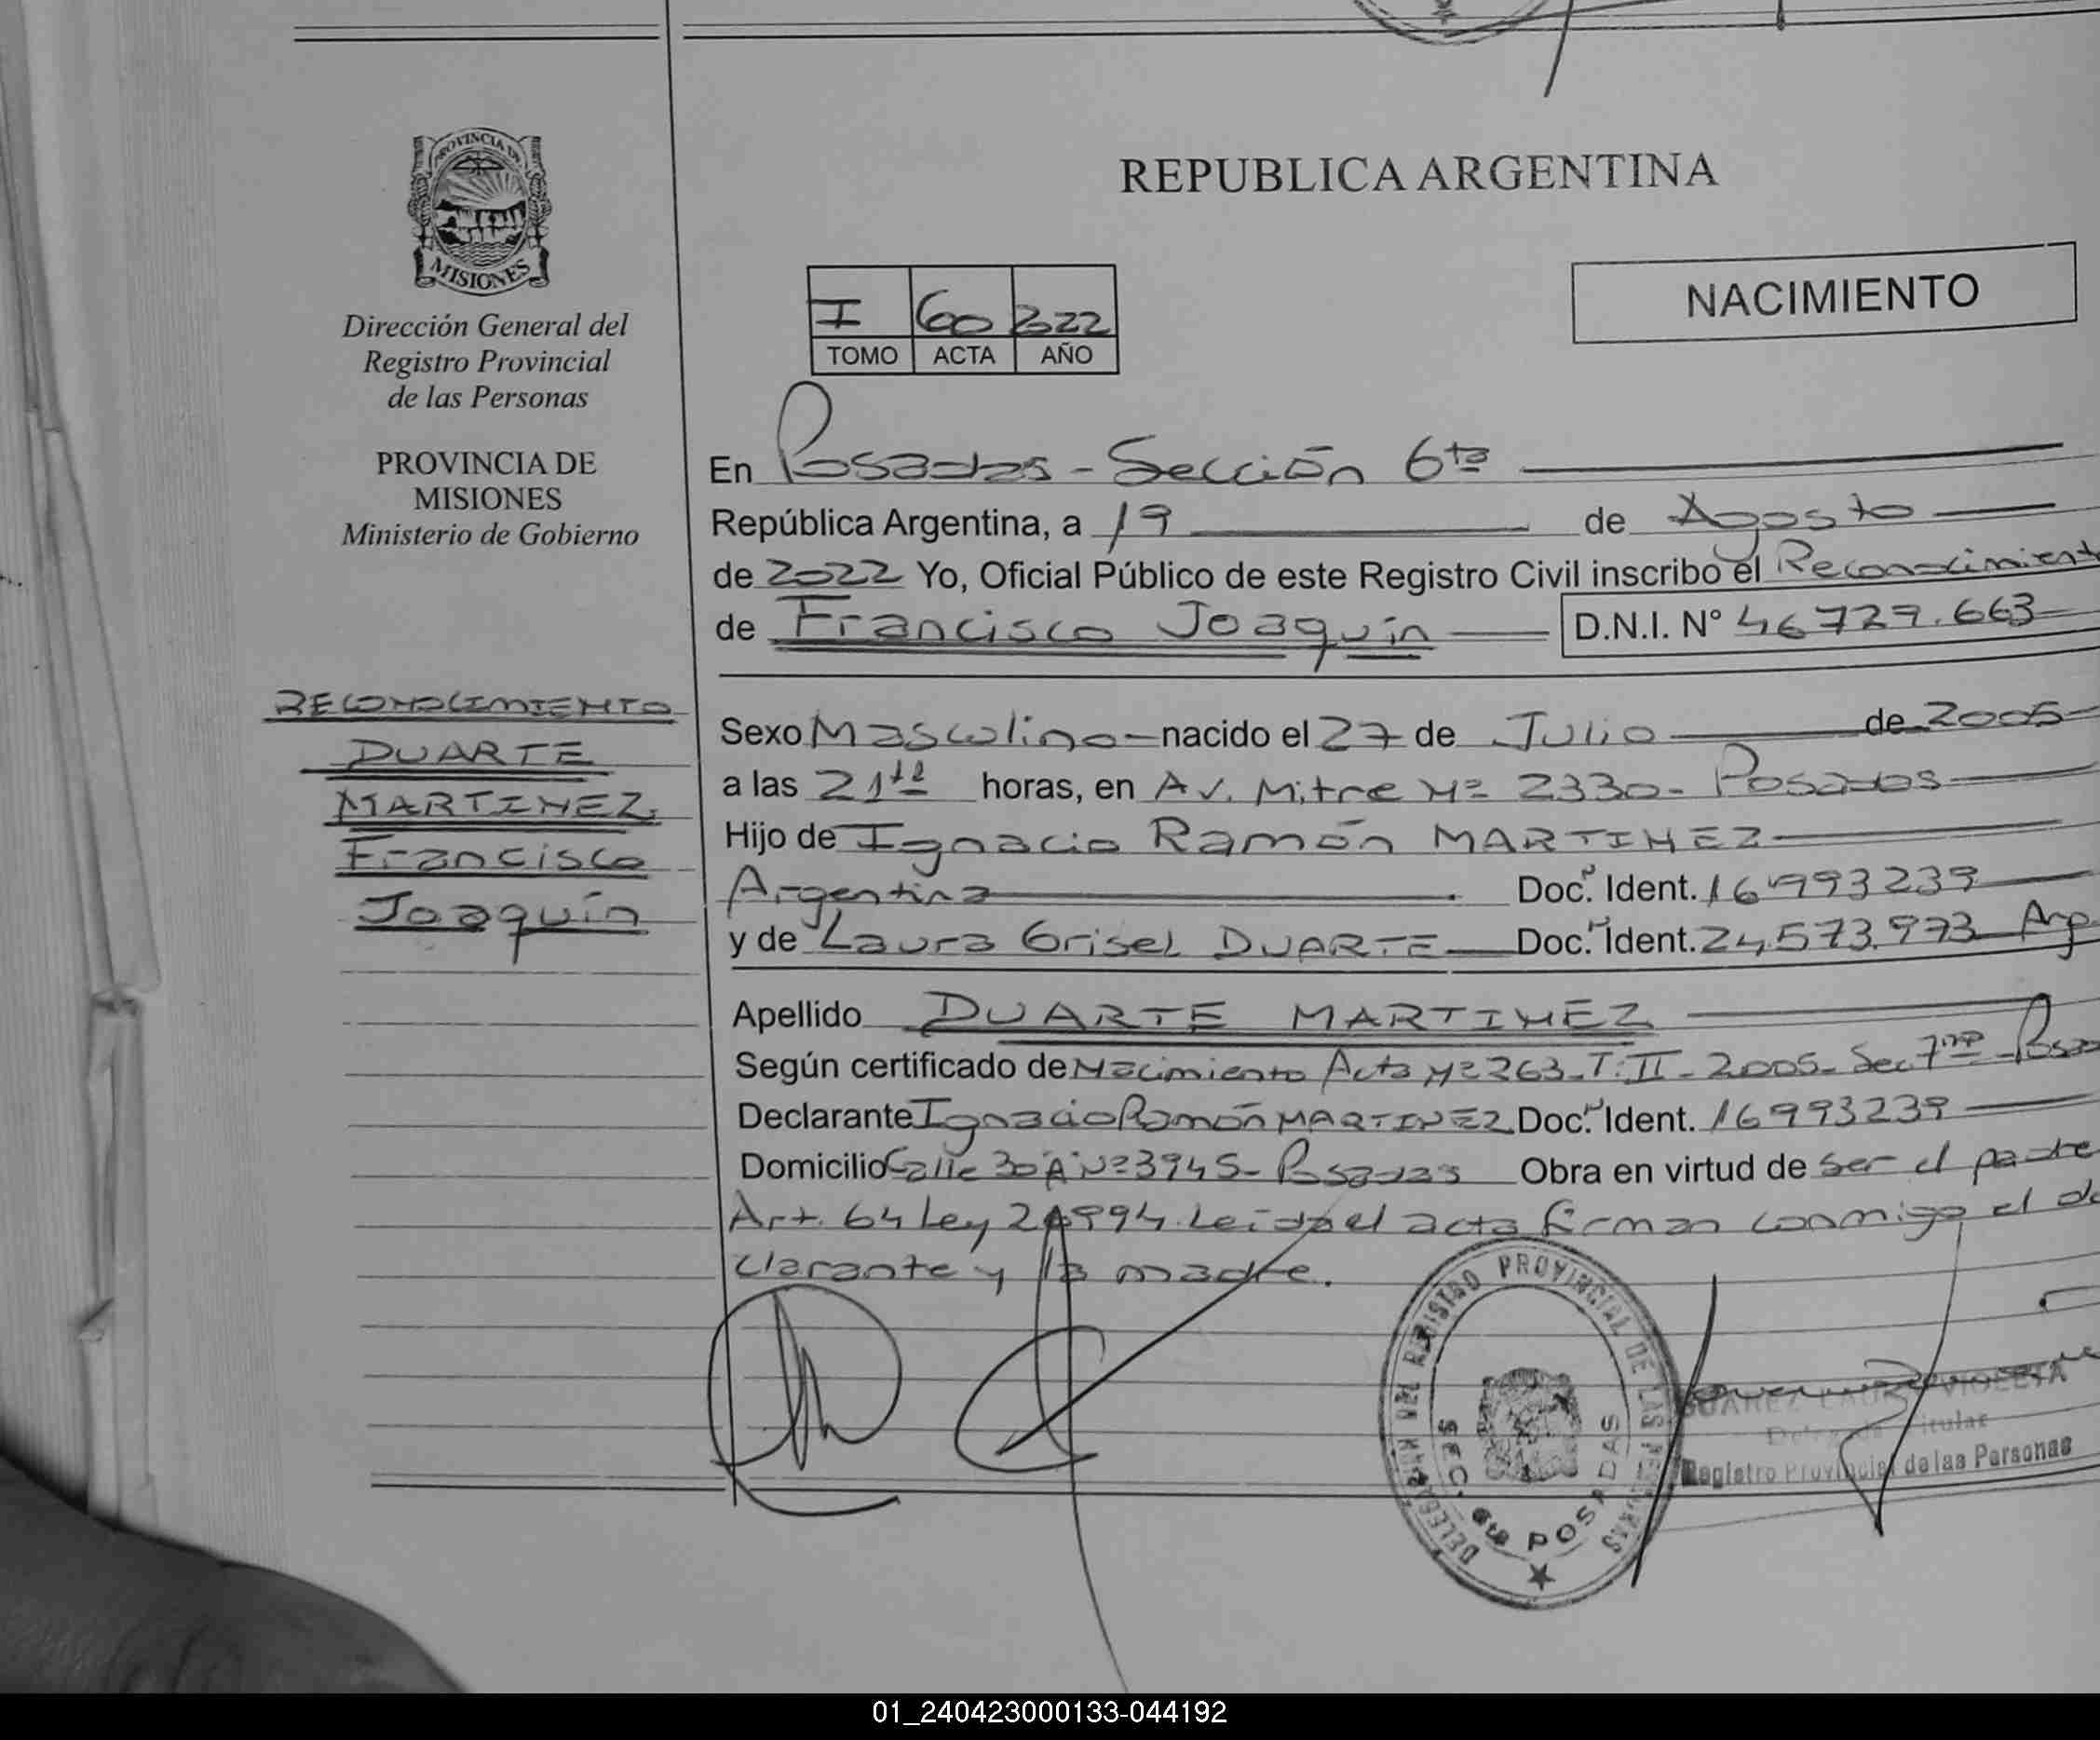 PROVINCIA DE
MISIONES
Dirección General del
Registro Provincial
de las Personas
PROVINCIA DE
MISIONES
Ministerio de Gobierno
RECONOCIMIENTO
DUARTE
MARTINEZ
Francisco
Joaquín
REPUBLICA ARGENTINA
NACIMIENTO
I 60 2022
TOMO ACTA AÑO
En Posadas - Sección 6ta
República Argentina, a 19 de Agosto
de 2022 Yo, Oficial Público de este Registro Civil inscribo el Reconocimient
de Francisco Joaquín D.N.I. N° 46729.663
Sexo Masculino nacido el 27 de Julio de 2005
a las 21 horas, en Av. Mitre Nº 2330 - Posadas
Hijo de Ignacio Ramón MARTINEZ
Argentina Doc. Ident. 16993239
y de Laura Grisel DUARTE Doc. Ident. 24.573.973 Arg.
Apellido DUARTE MARTINEZ
Según certificado de Nacimiento Acta Nº 263 - T: II - 2005 - Sec. 7ma - Posa
Declarante Ignacio Ramón MARTINEZ Doc. Ident. 16993239
Domicilio Calle 30 "A" Nº 3945 - Posadas Obra en virtud de ser el padre
Art. 64 Ley 26994. Leída el acta firman conmigo el de
clarante y la madre.
DELEGACION DEL REGISTRO PROVINCIAL DE LAS PERSONAS
SEC. 6ta POSADAS
SUAREZ VIOLETA
Titular
Registro Provincial de las Personas
01_240423000133-044192